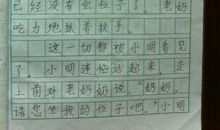 已经没有空位子了。老奶
吃力地扶着扶手。
这一切都被小明看见
了。小明连忙站起来，走
上前对老奶说“奶奶，
请您坐我的位子吧。”小明